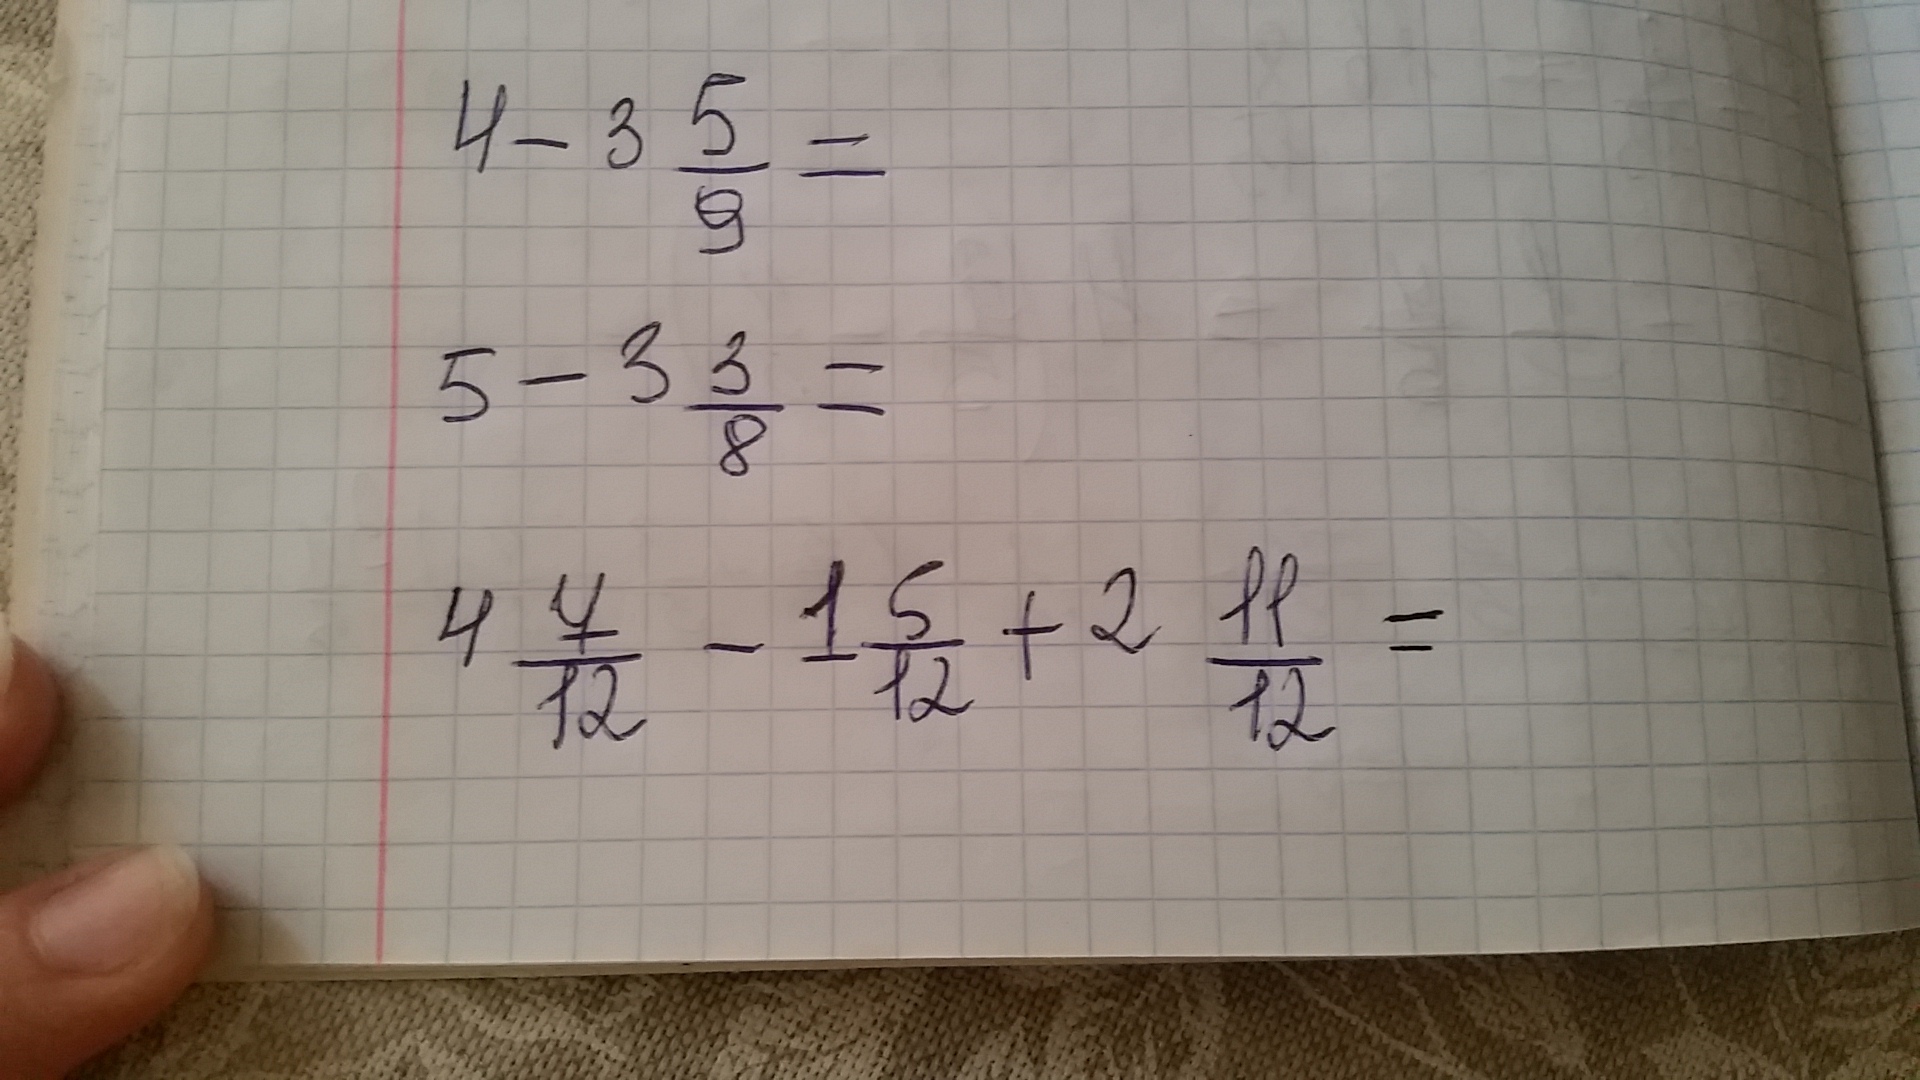 4 - 3 5/9 =
5 - 3 3/8 =
4 7/12 - 1 5/12 + 2 11/12 =